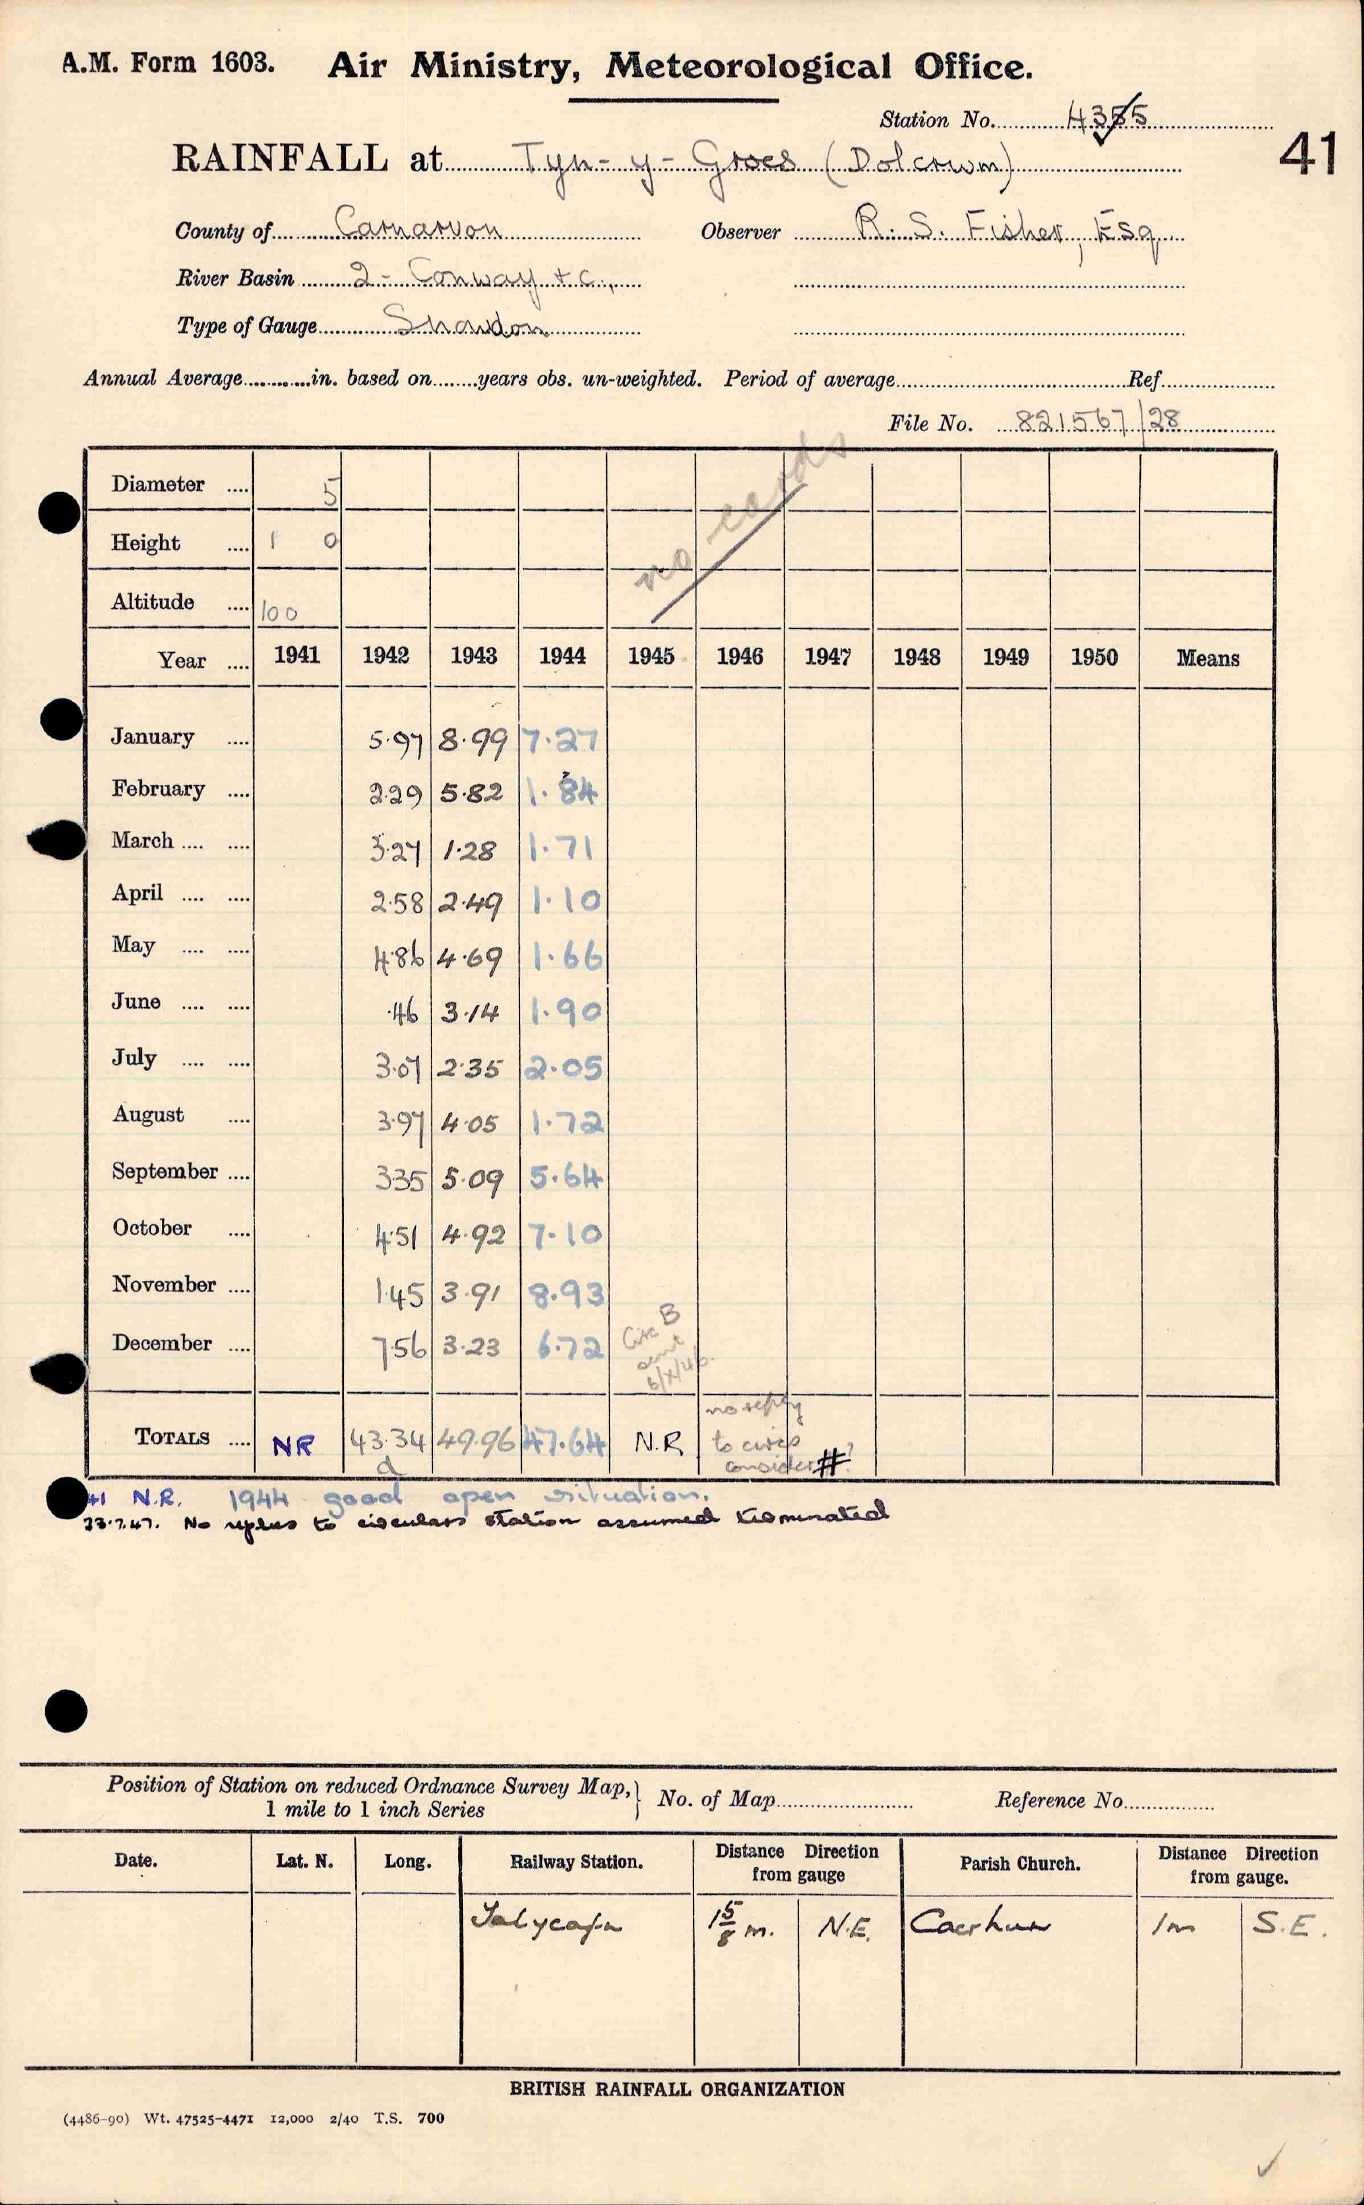 A.M. Form 1603. Air Ministry, Meteorological Office.
Station No. 4355
41
RAINFALL at Tyn-y-Groes (Dolcrwm)
County of Carnarvon Observer R. S. Fisher, Esq.
River Basin 2 - Conway + c.,
Type of Gauge Snowdon
Annual Average in. based on years obs. un-weighted. Period of average Ref
File No. 821567/28
no cards
Diameter .... 5
Height .... 1 0
Altitude .... 100
Year .... 1941 1942 1943 1944 1945 1946 1947 1948 1949 1950 Means
January .... 5.97 8.99 7.27
February .... 2.29 5.82 1.84
March .... .... 3.27 1.28 1.71
April .... .... 2.58 2.49 1.10
May .... .... 4.86 4.69 1.66
June .... .... .46 3.14 1.90
July .... .... 3.07 2.35 2.05
August .... 3.97 4.05 1.72
September .... 335 5.09 5.64
October .... 4.51 4.92 7.10
November .... 1.45 3.91 8.93
December .... 7.56 3.23 6.72 Circ B sent 6/X/46.
TOTALS .... NR 43.34 49.96 47.64 N.R. no reply to circs consider #?
d
41 N.R. 1944 good open situation.
23.7.47. No replies to circulars station assumed terminated
Position of Station on reduced Ordnance Survey Map, 1 mile to 1 inch Series } No. of Map Reference No.
Date. Lat. N. Long. Railway Station. Distance Direction from gauge Parish Church. Distance Direction from gauge.
Talycafn 1 5/8 m. N.E. Caerhun 1m S.E.
BRITISH RAINFALL ORGANIZATION
(4486-90) Wt. 47525-4471 12,000 2/40 T.S. 700